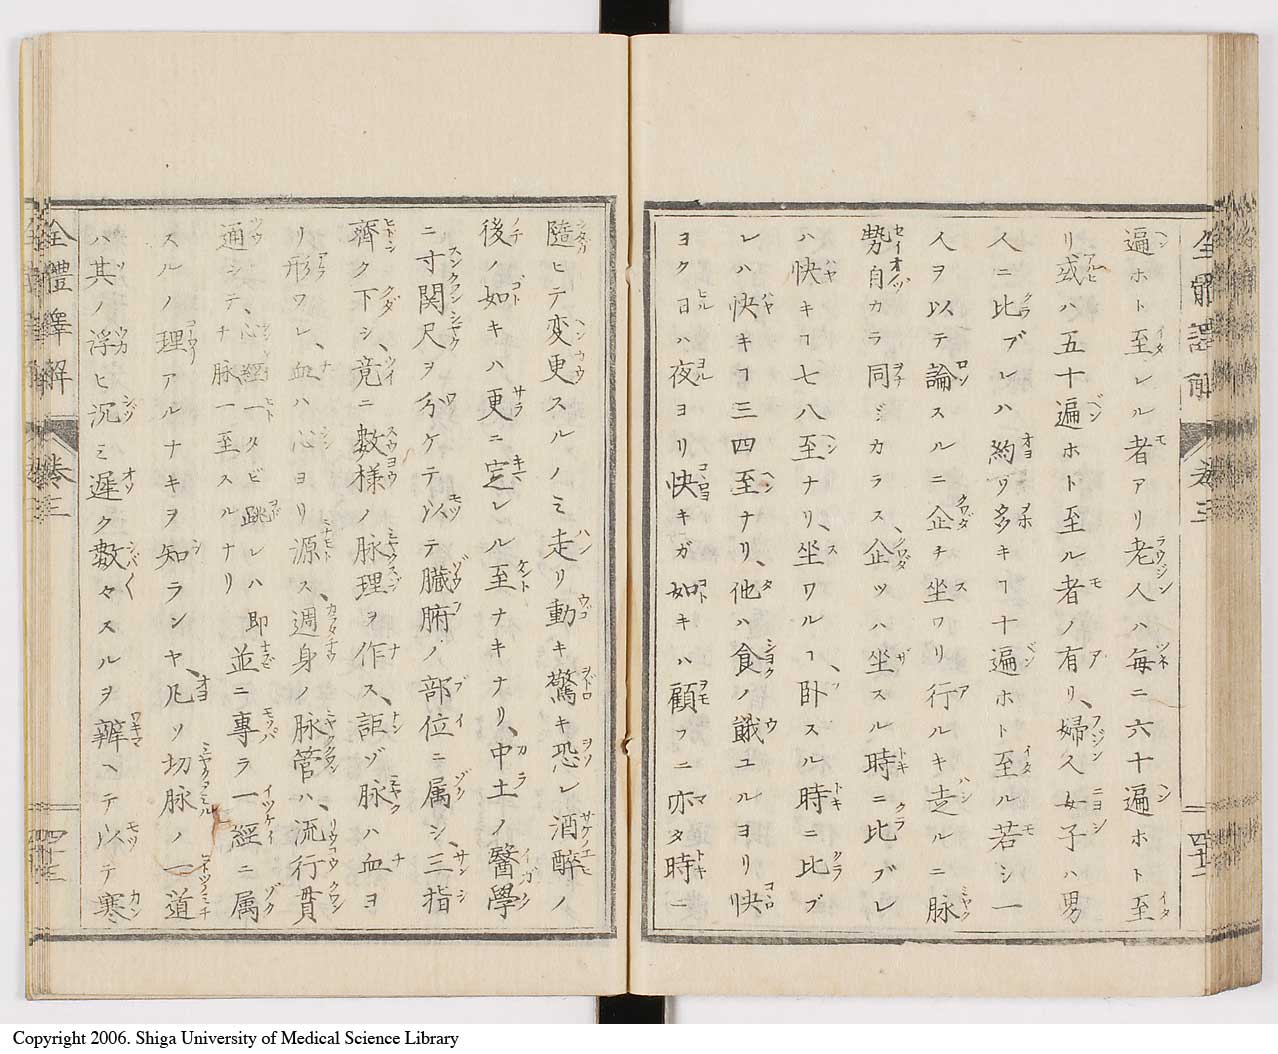 遍ホト至レル者アリ老人ハ毎ニ六十遍ホト至
リ或ハ五十遍ホト至ル者ノ有リ、婦人女子ハ男
人ニ比ブレハ約ソ多キヿ十遍ホト至ル若シ一
人ヲ以テ論スルニ企チ坐ワリ行ルキ走ルニ脉
勢自カラ同ジカラス、企ツハ坐スル時ニ比ブレ
ハ快キヿ七八至ナリ、坐ワルヿ、卧スル時ニ比ブ
レハ快キヿ三四至ナリ、他ハ食ノ餓ユルヨリ快
ヨク日ハ夜ヨリ快キガ如キハ顧フニ亦タ時ニ
全體譯解
卷三
四十二
隨ヒテ変更スルノミ走リ動キ驚キ恐レ酒醉ノ
後ノ如キハ更ニ定レル至ナキナリ、中土ノ醫學
ニ寸関尺ヲ分ケテ以テ臓腑ノ部位ニ属シ、三指
齊ク下シ、竟ニ數様ノ脉理ヲ作ス、詎ゾ脉ハ血ヨ
リ形ワレ、血ハ心ヨリ源ス、週身ノ脉管ハ、流行貫
通シテ、心經一タビ跳レハ即並ニ專ラ一經ニ属
スルノ理アルナキヲ知ランヤ、凡ソ切脉ノ一道
ハ其ノ浮ヒ沉ミ遲ク數々スルヲ辨ヘテ以テ寒
全體譯解
卷三
四十三
Copyright 2006. Shiga University of Medical Science Library